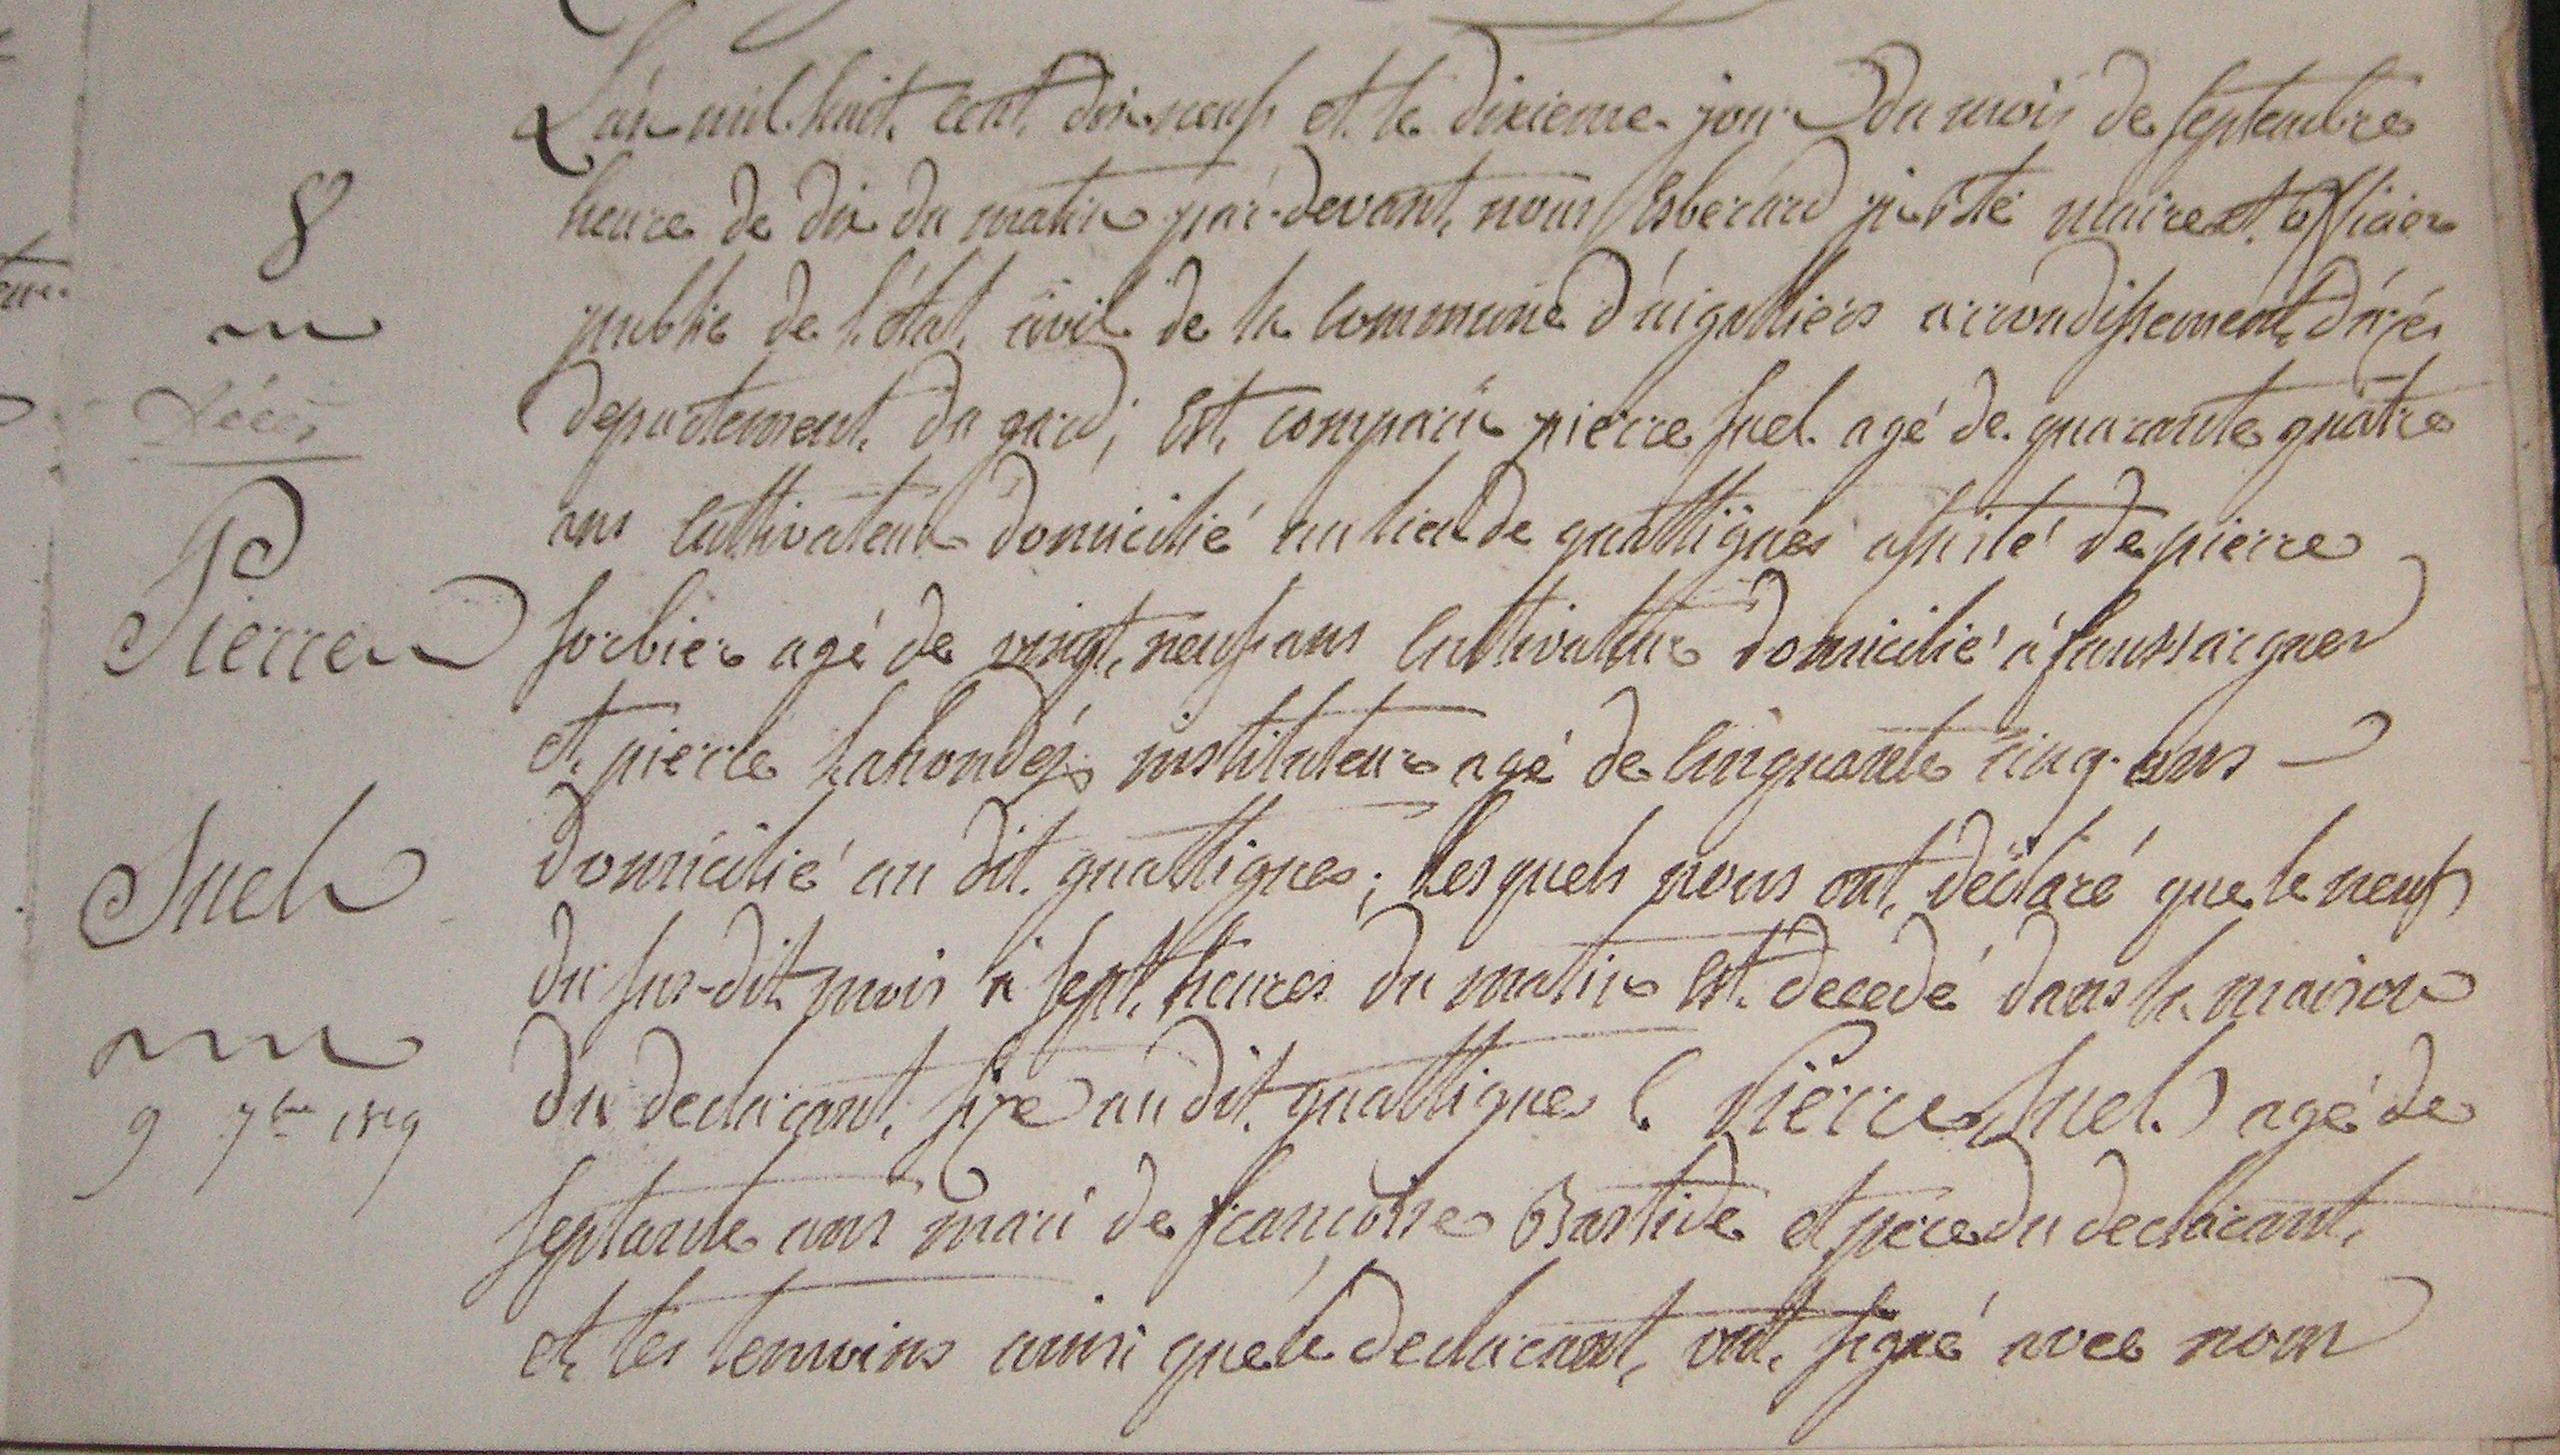 8
Décès
Pierre
Suel
9 7bre 1819
L'an mil huit cent dix neuf et le dixieme jour du mois de septembre
heure de dix du matin par-devant nous Esberard maire et officier
public de l'état civil de la commune d'aigalliers arrondissement d'uzés
departement du gard; Est comparu pierre suel agé de quarante quatre
ans Cultivateur domicilié au lieu de gattigues assisté de pierre
sorbier agé de vingt neuf ans Cultivateur domicilié à foussargues
et pierre Lahondés instituteur agé de Cinquante cinq ans
domicilié au dit gattigues; Lesquels nous ont déclaré que le neuf
du sus-dit mois à sept heures du matin Est decedé dans la maison
du declarant, size au dit gattigues ( Pierre Suel ) agé de
septante ans mari de françoise Bastide et pere du declarant,
et les temoins ainsi que le declarant, ont signé avec nous